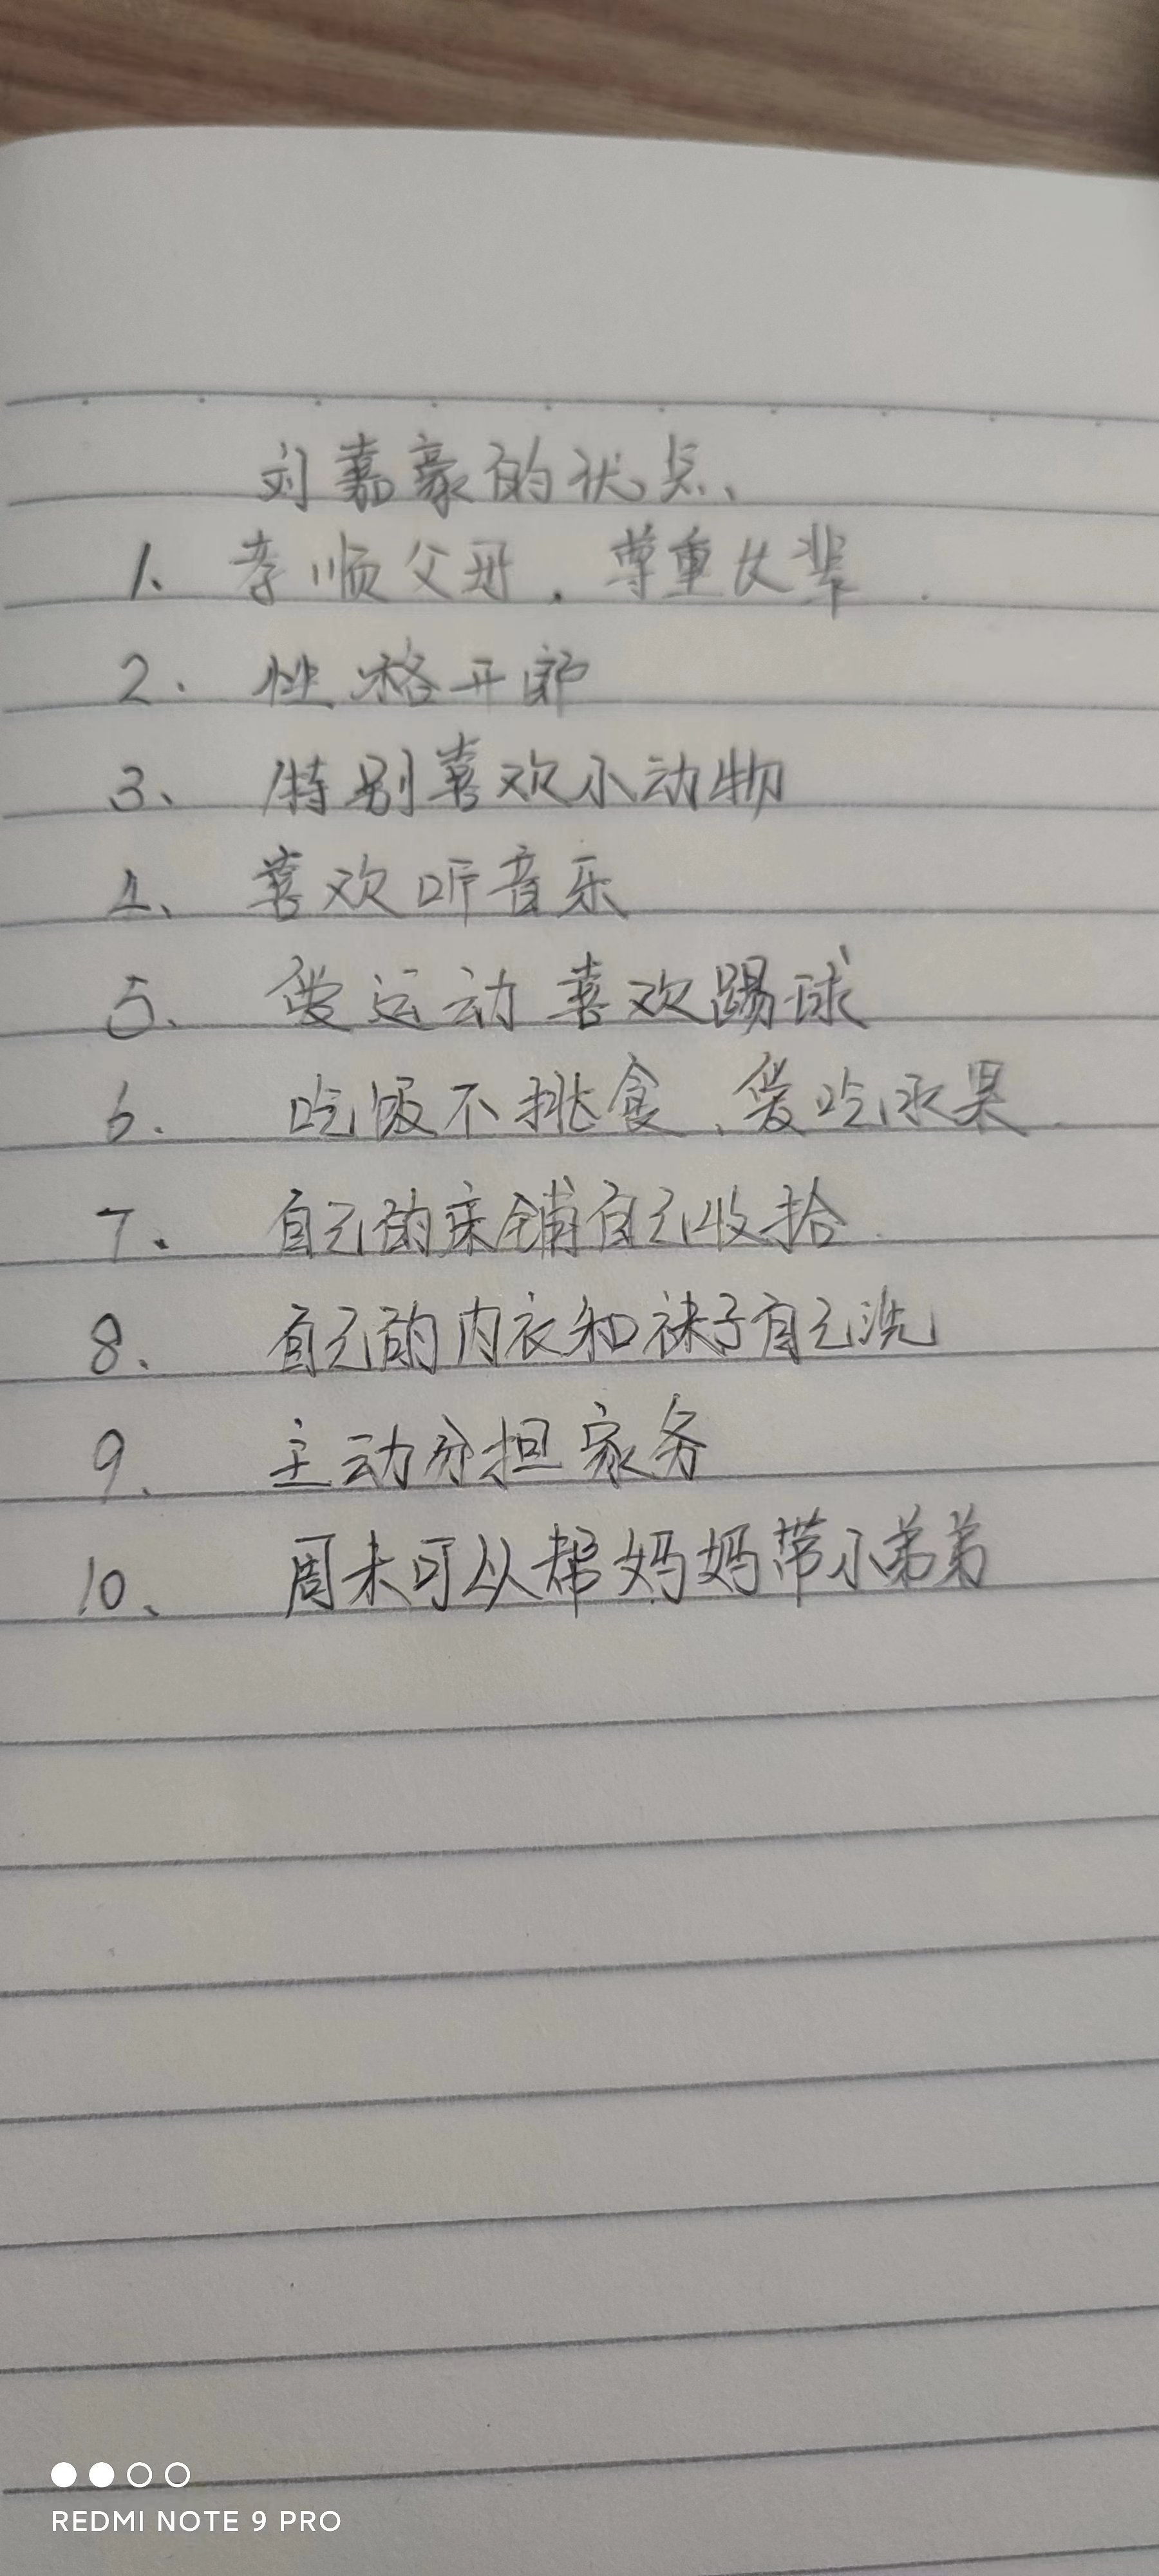 刘嘉豪的优点、
1、孝顺父母，尊重长辈.
2. 性格开朗
3、特别喜欢小动物
4、喜欢听音乐
5. 爱运动喜欢踢球
6. 吃饭不挑食、爱吃水果.
7. 自己的床铺自己收拾.
8. 自己的内衣和袜子自己洗
9. 主动分担家务
10、周末可以帮妈妈带小弟弟
REDMI NOTE 9 PRO